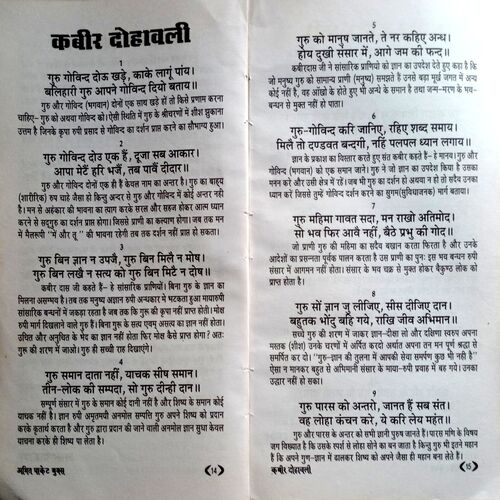 कबीर दोहावली
1
गुरु गोविन्द दोऊ खड़े, काके लागूं पांय।
बलिहारी गुरु आपने गोविन्द दियो बताय॥
गुरु और गोविन्द (भगवान) दोनों एक साथ खड़े हों तो किसे प्रणाम करना
चाहिए– गुरु को अथवा गोविन्द को। ऐसी स्थिति में गुरु के श्रीचरणों में शीश झुकाना
उत्तम है जिनके कृपा रुपी प्रसाद से गोविन्द का दर्शन प्राप्त करने का सौभाग्य हुआ।
2
गुरु गोविन्द दोउ एक हैं, दूजा सब आकार।
आपा मेटैं हरि भजैं, तब पावैं दीदार॥
गुरु और गोविन्द दोनों एक ही हैं केवल नाम का अन्तर है। गुरु का बाह्य
(शारीरिक) रुप चाहे जैसा हो किन्तु अन्दर से गुरु और गोविन्द में कोई अन्तर नही
है। मन से अहंकार की भावना का त्याग करके सरल और सहज होकर आत्म ध्यान
करने से सद्गुरु का दर्शन प्राप्त होगा। जिससे प्राणी का कल्याण होगा। जब तक मन
में मैलरूपी "मैं और तू" की भावना रहेगी तब तक दर्शन नहीं प्राप्त हो सकता।
3
गुरु बिन ज्ञान न उपजै, गुरु बिन मिलै न मोष।
गुरु बिन लखै न सत्य को गुरु बिन मिटै न दोष॥
कबीर दास जी कहते हैं– हे सांसारिक प्राणियों। बिना गुरु के ज्ञान का
मिलना असम्भव है। तब तक मनुष्य अज्ञान रुपी अन्धकार मे भटकता हुआ मायारुपी
सांसारिक बन्धनों में जकड़ा रहता है जब तक कि गुरु की कृपा नहीं प्राप्त होती। मोक्ष
रुपी मार्ग दिखलाने वाले गुरु हैं। बिना गुरु के सत्य एवम् असत्य का ज्ञान नहीं होता।
उचित और अनुचित के भेद का ज्ञान नहीं होता फिर मोक्ष कैसे प्राप्त होगा? अतः
गुरु की शरण में जाओ। गुरु ही सच्ची राह दिखाएंगे।
4
गुरु समान दाता नहीं, याचक सीष समान।
तीन-लोक की सम्पदा, सो गुरु दीन्ही दान॥
सम्पूर्ण संसार में गुरु के समान कोई दानी नहीं है और शिष्य के समान कोई
याचक नहीं है। ज्ञान रुपी अमृतमयी अनमोल सम्पत्ति गुरु अपने शिष्य को प्रदान
करके कृतार्थ करता है और गुरु द्वारा प्रदान की जाने वाली अनमोल ज्ञान सुधा केवल
याचना करके ही शिष्य पा लेता है।
अमित पाकेट बुक्स
14
5
गुरु को मानुष जानते, ते नर कहिए अन्ध।
होय दुखी संसार में, आगे जम की फन्द॥
कबीरदास जी ने सांसारिक प्राणियों को ज्ञान का उपदेश देते हुए कहा है
कि जो मनुष्य गुरु को सामान्य प्राणी (मनुष्य) समझते हैं उनसे बड़ा मूर्ख जगत में अन्य
कोई नहीं है, वह आंखों के होते हुए भी अन्धे के समान है तथा जन्म-मरण के भव-
बन्धन से मुक्त नहीं हो पाता।
6
गुरु-गोविन्द करि जानिए, रहिए शब्द समाय।
मिलै तो दण्डवत बन्दगी, नहिं पलपल ध्यान लगाय॥
ज्ञान के प्रकाश का विस्तार करते हुए संत कबीर कहते हैं– हे मानव। गुरु और
गोविन्द (भगवान) को एक समान जानें। गुरु ने जो ज्ञान का उपदेश किया है उसका
मनन करे और उसी क्षेत्र में रहें। जब भी गुरु का दर्शन हो अथवा न हो तो सदैव उनका
ध्यान करें जिससे तुम्हें गोविन्द दर्शन करने का सुगम(सुविधाजनक) मार्ग बताया।
7
गुरु महिमा गावत सदा, मन राखो अतिमोद।
सो भव फिर आवै नहीं, बैठे प्रभु की गोद॥
जो प्राणी गुरु की महिमा का सदैव बखान करता फिरता है और उनके
आदेशों का प्रसन्नता पूर्वक पालन करता है उस प्राणी का पुनः इस भव बन्धन रुपी
संसार में आगमन नहीं होता। संसार के भव चक्र से मुक्त होकर बैकुण्ठ लोक को
प्राप्त होता है।
8
गुरु सों ज्ञान जु लीजिए, सीस दीजिए दान।
बहुतक भोंदु बहि गये, राखि जीव अभिमान॥
सच्चे गुरु की शरण में जाकर ज्ञान–दीक्षा लो और दक्षिणा स्वरुप अपना
मस्तक (शीश) उनके चरणों में अर्पित करदो अर्थात अपना तन मन पूर्ण श्रद्धा से
समर्पित कर दो। "गुरु-ज्ञान की तुलना में आपकी सेवा समर्पण कुछ भी नही है"
ऐसा न मानकर बहुत से अभिमानी संसार के माया-रुपी प्रवाह में बह गये। उनका
उद्धार नहीं हो सका।
9
गुरु पारस को अन्तरो, जानत हैं सब संत।
वह लोहा कंचन करे, ये करि लेय महंत॥
गुरु और पारस के अन्तर को सभी ज्ञानी पुरुष जानते हैं। पारस मणि के विषय
जग विख्यात है कि उसके स्पर्श से लोहा सोने का बन जाता है किन्तु गुरु भी इतने महान
हैं कि अपने गुण-ज्ञान में ढालकर शिष्य को अपने जैसा ही महान बना लेते हैं।
कबीर दोहावली
15